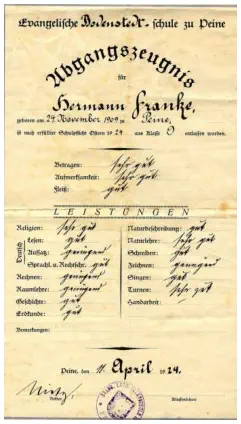 Evangelische Bodenstedt-schule zu Peine
Abgangszeugnis
für
Hermann Franke,
geboren am 24. November 1909 zu Peine,
ist nach erfüllter Schulpflicht Ostern 1924 aus Klasse 9 entlassen worden.
Betragen: sehr gut
Aufmerksamkeit: sehr gut
Fleiß: gut
LEISTUNGEN
Religion: sehr gut
Deutsch
Lesen: gut
Aufsatz: genügend
Sprachl. u. Rechtschr. gut
Rechnen: genügend
Raumlehre: genügend
Geschichte: gut
Erdkunde: gut
Naturbeschreibung: gut
Naturlehre: sehr gut
Schreiben: gut
Zeichnen: genügend
Singen: gut
Turnen: sehr gut
Handarbeit:
Bemerkungen:
Peine, den 11. April 1924.
Rektor
Klassenlehrer